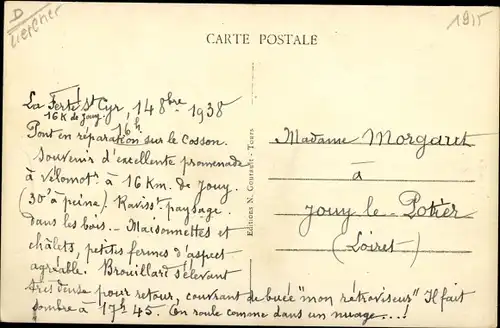 D
1915
CARTE POSTALE
La Ferté St Cyr, 14 8bre 1938
16 K de Jouy
16h
Pont en réparation sur le Cosson.
Souvenir d'excellente promenade
à Vélomotr à 16 Km. de Jouy
(30' à peine). Ravisst paysage
dans les bois. — Maisonnettes et
châlets, petites fermes d'aspect
agréable. Brouillard s'élevant
très dense pour retour, couvrant de buée "mon rétroviseur" Il fait
sombre à 17h 45. On roule comme dans un nuage...!
Editions N. Coutante - Tours
Madame Morgaret
à
Jouy le Potier
(Loiret)